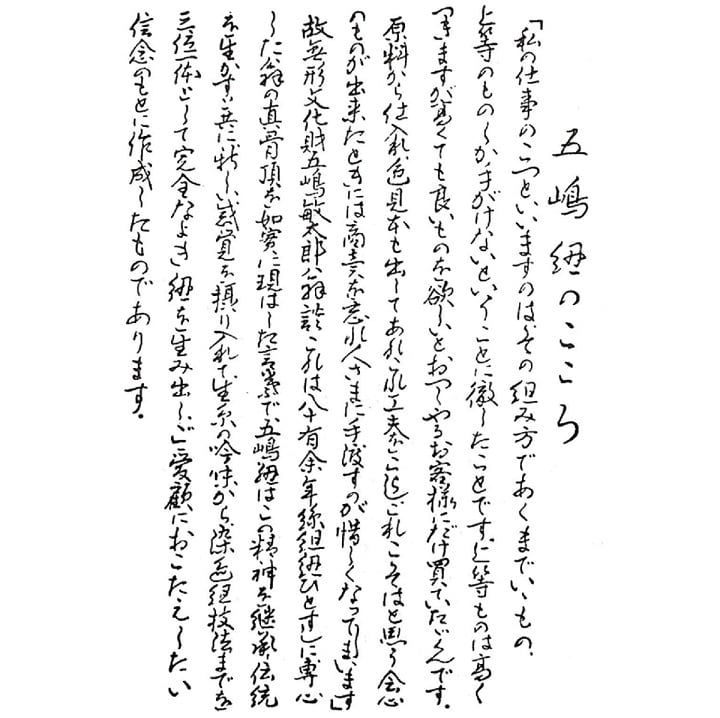 五嶋紐のこころ
「私の仕事のこつといいますのは、その組み方であくまでいいもの、
上等のものしか手がけないということに徹したことです。上等ものは高く
つきますが、高くても良いものを欲しいとおっしゃるお客様にだけ買ていただくんです。
原料から仕入れ、色見本も出してあれこれ工夫をこらしこれこそはと思う会心
のものが出来たときには商売を忘れ人さまに手渡すのが惜しくなってしまいます」
故無形文化財五嶋敏太郎翁談 これは八十有余年絲組紐ひとすじに専心
した翁の真骨頂を如実に現はした言葉で、五嶋紐はこの精神を継承、伝統
を生かすと共に新しい感覚を摂り入れて生糸の吟味から染色組技法までを
三位一体として完全なよき紐を生み出し、ご愛顧におこたえしたい
信念のもとに作成したものであります。